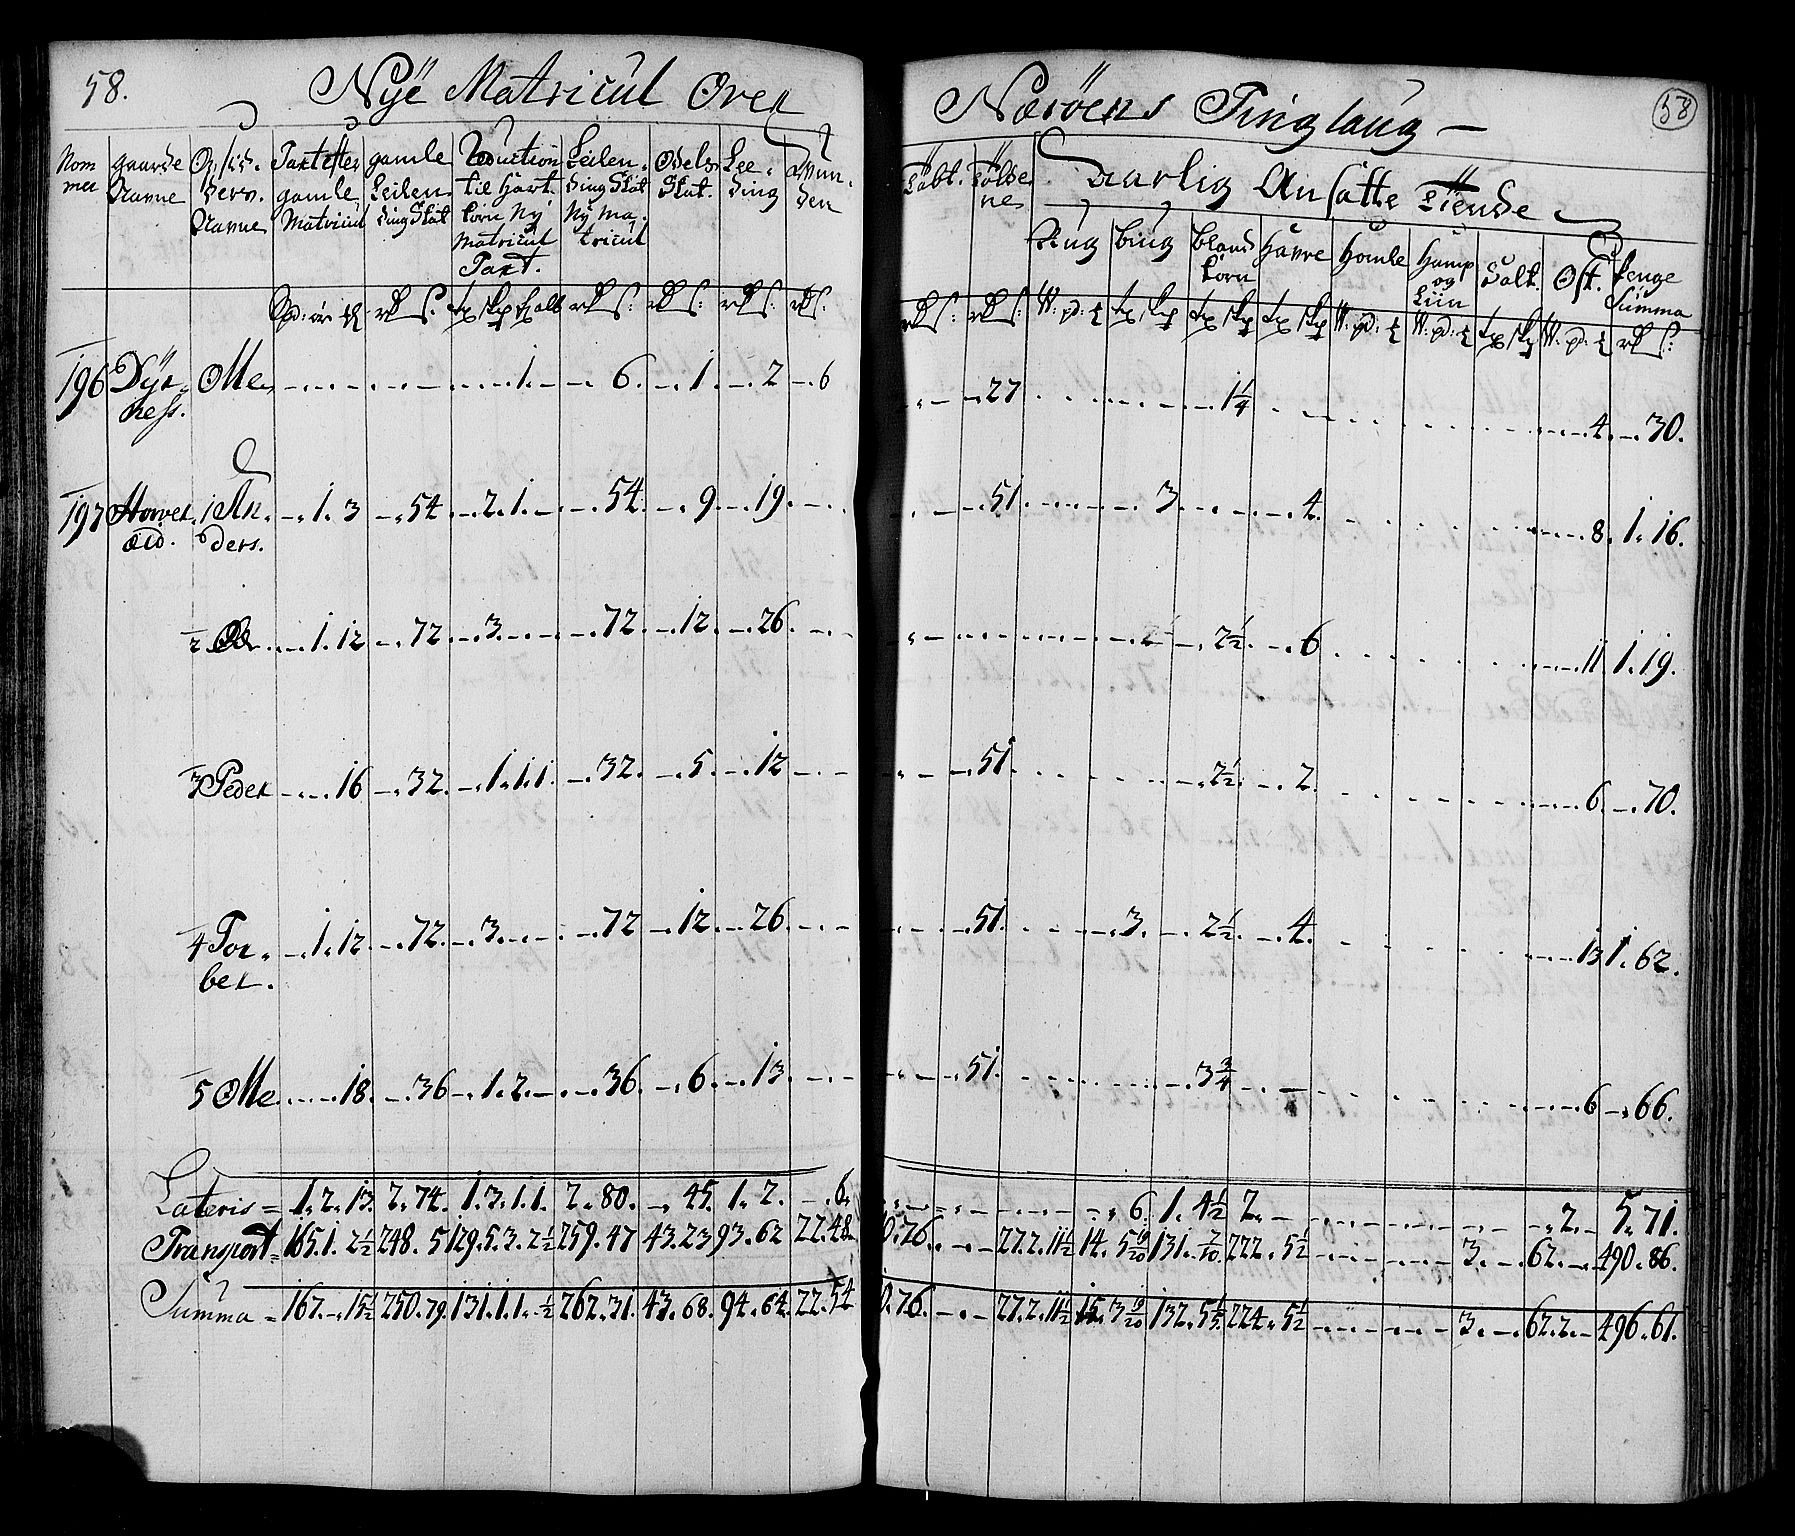 58. Nÿe Matricul Over Nærøens Tinglaug — 58
Nom mer | gaarde Navne | Op,sid. ders. Navne | Taxt efter gamle Matricul | gamle Leilen ding Skat | Reduction til Hart. korn Nÿ Matricul Taxt. | Leilen. ding Skat Nÿ Ma. tricul | Odels Skat. | Lee. ding | Mun. der | Tolde ne | Aarlig Ansatte Tiende
Rug | biug | bland korn | Havre | Homle | Hamp og Liin | Salt. | Ost. | Penge Summa
196 Dÿr- Ole 1. 6. 1. 2 6 27 1¼ 4. 30.
ness.
197 Hovet. 1 An. 1. 3 54 2. 1. 54. 9. 19. 51. 3. 4. 8. 1. 16.
ders.
2 Ole 1. 12 72 3. 72. 12. 26. 2½ 6 11. 1. 19.
3 Peder 16 32. 1. 1. 1. 32. 5. 12 51. 2½. 2. 6. 70.
4 Tor- 1. 12. 72. 3. 72 12. 26. 51. 3. 2½. 4. 13 1. 62.
ber.
5 Ole 18. 36 1. 2. 36. 6. 13. 51. 3¾ 6 66.
Lateris = 1. 2. 13. 2. 74. 1. 3. 1. 1. 2. 80. 45. 1. 2. 6. 6. 1. 4½ 2. 2. 5. 71.
Transport = 165. 1. 2½ 248. 5 129. 5. 3. 2½ 259. 47 43. 23 93. 62 22. 48. 0. 76. 27. 2. 11½ 14. 5 19/20 131. 7/10. 222. 5½ 3. 62. 490. 86.
Summa = 167. 15½ 250. 79. 131. 1. 1. ½ 262. 31. 43. 68. 94. 64. 22. 54 0. 76. 27. 2. 11½ 15. 3 19/20 132. 5⅕. 224. 5½ 3. 62. 2. 496. 61.